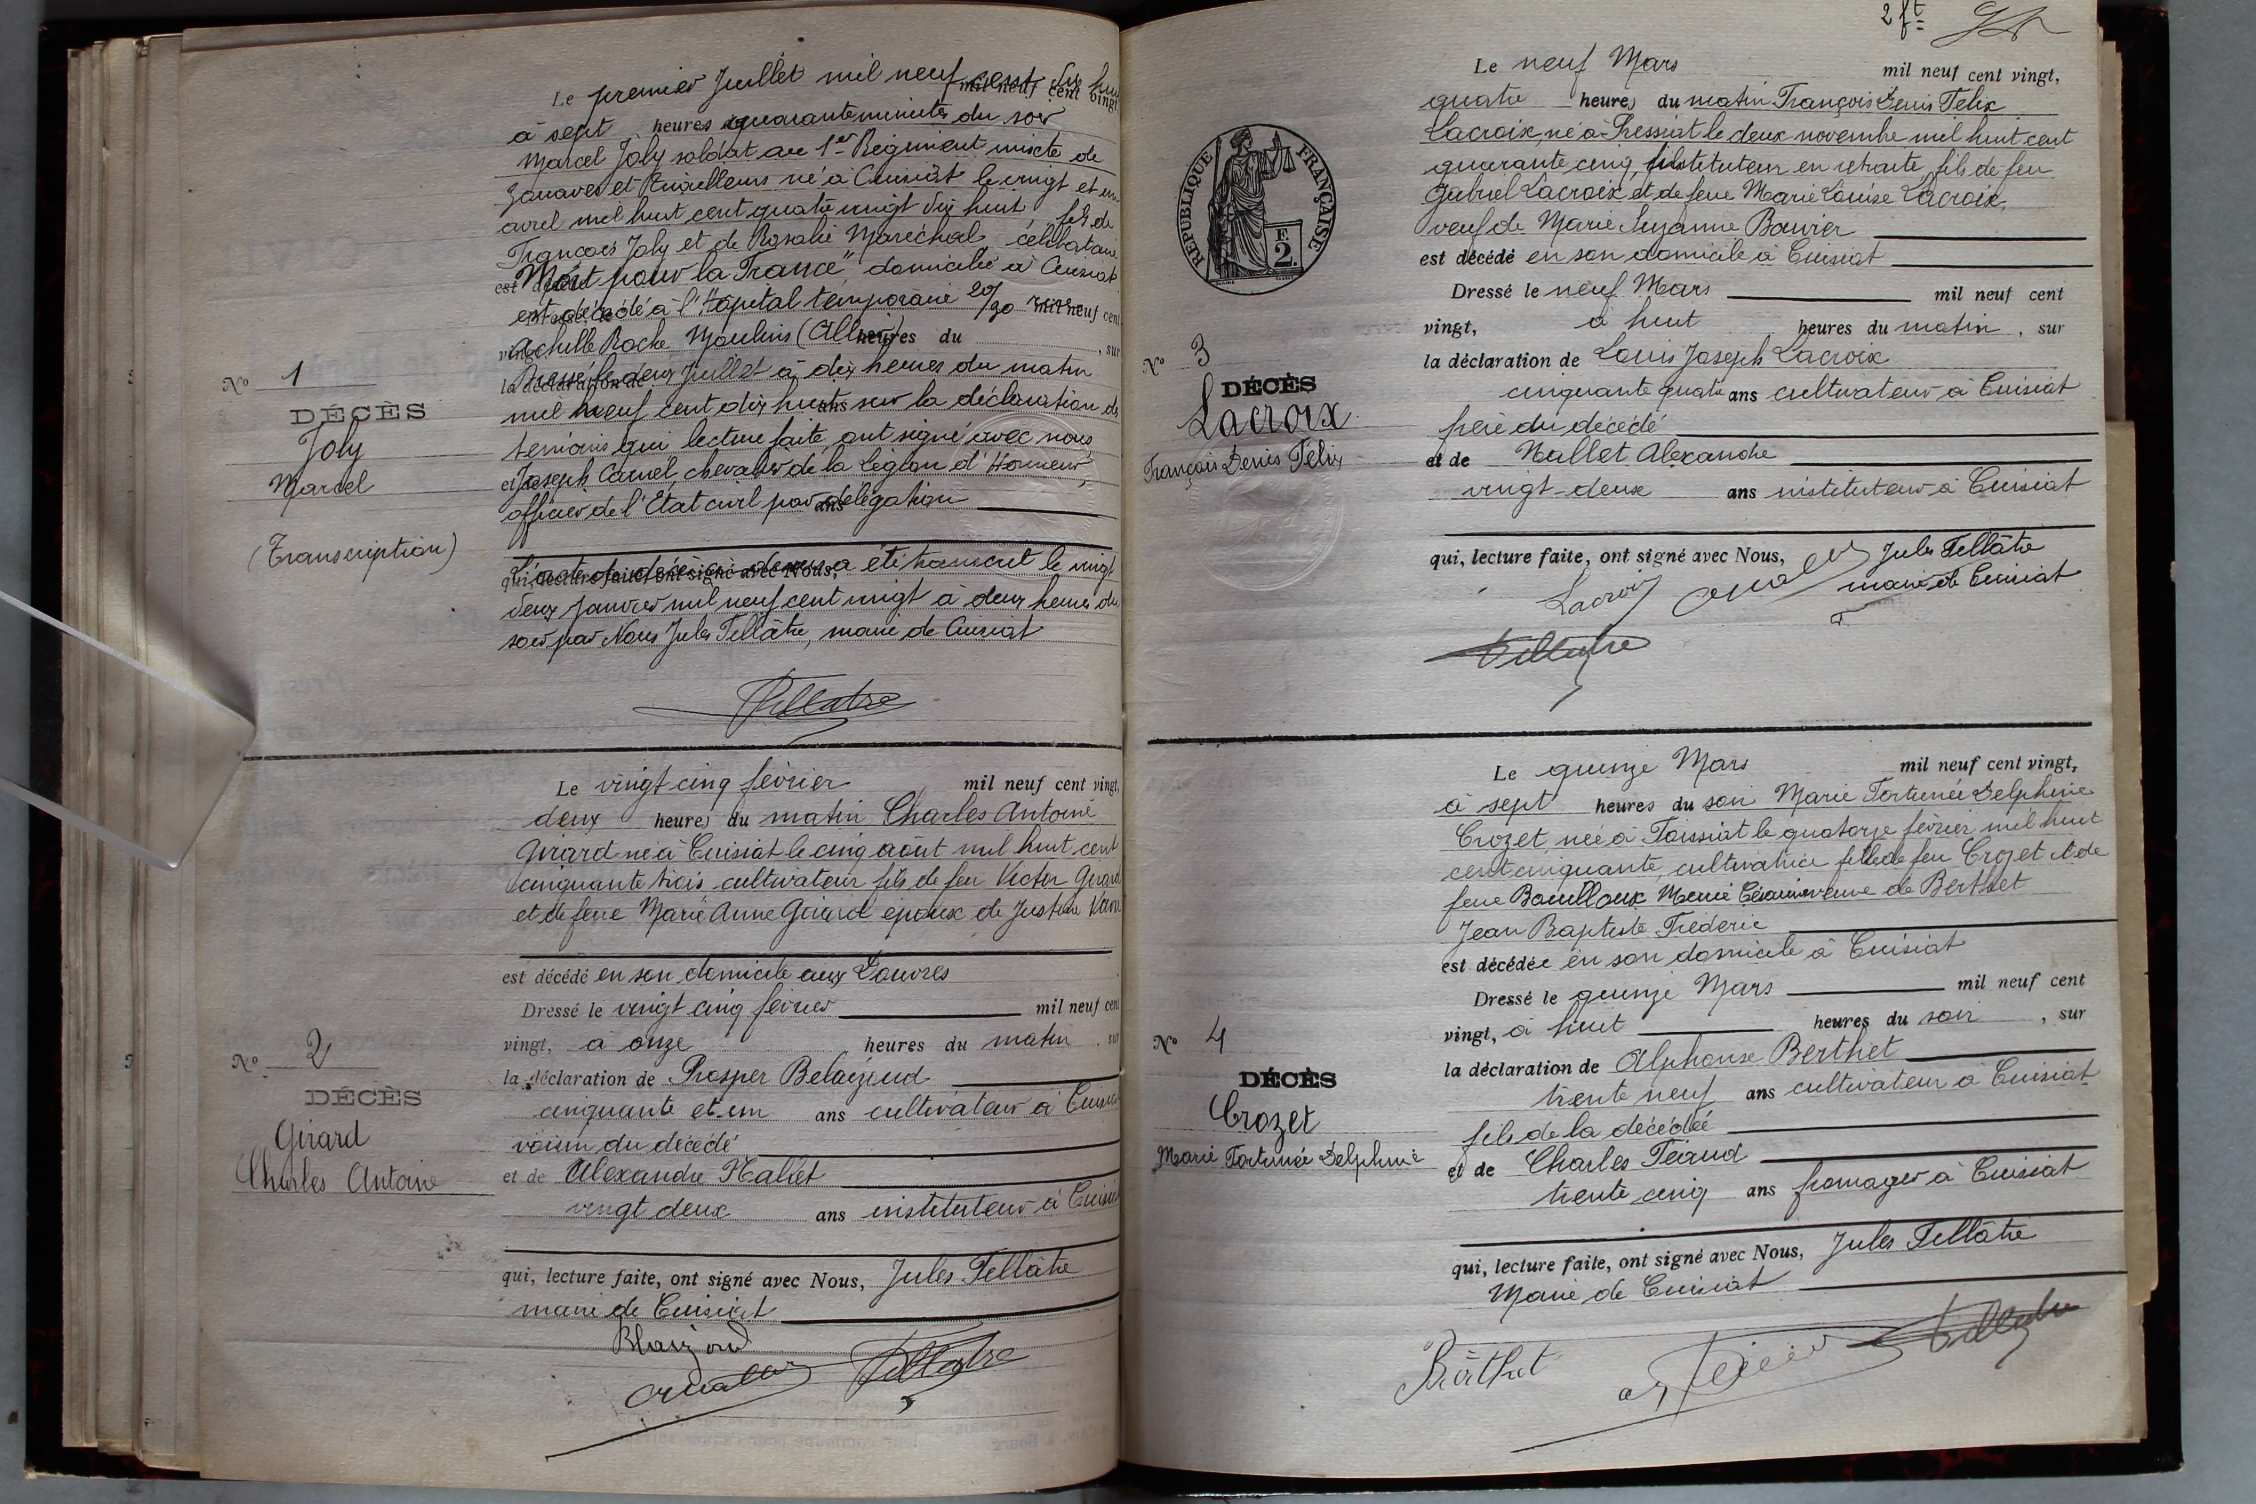 N° 1
DÉCÈS
Joly
Marcel
(Transcription)
Le premier Juillet mil neuf cent dix huit
à sept heures quarante minutes du soir
Marcel Joly soldat au 1er Régiment mixte de
Zouaves et Tirailleurs né à Cuisiat le vingt et un
avril mil huit cent quatre vingt dix huit, fils de
François Joly et de Rosalie Maréchal célibataire
"Mort pour la France" domicilié à Cuisiat
est décédé à l'Hôpital temporaire 20/90
Achille Roche Moulins (Allier)
Dressé le deux Juillet à dix heures du matin
mil neuf cent dix huit sur la déclaration de
témoins qui lecture faite, ont signé avec nous
Joseph Carnel, chevalier de la Légion d'Honneur,
officier de l'Etat civil par délégation
L'acte de décès ci-dessus a été transcrit le vingt
deux janvier mil neuf cent vingt à deux heures du
soir par Nous Jules Pellâtre, maire de Cuisiat
Pellatre
N° 2
DÉCÈS
Girard
Charles Antoine
Le vingt cinq février mil neuf cent vingt,
deux heures du matin Charles Antoine
Girard né à Cuisiat le cinq août mil huit cent
cinquante trois cultivateur fils de feu Victor Girard
et de feue Marie Anne Girard époux de Justine
est décédé en son domicile aux Louvres
Dressé le vingt cinq février mil neuf cent
vingt, à onze heures du matin, sur
la déclaration de Prosper Belaizoud
cinquante et un ans cultivateur à Cuisiat
voisin du décédé
et de Alexandre Mallet
vingt deux ans instituteur à Cuisiat
qui, lecture faite, ont signé avec Nous, Jules Pellâtre
maire de Cuisiat
Pellatre
2 ft
N° 3
DÉCÈS
Lacroix
François Denis Félix
RÉPUBLIQUE FRANÇAISE
F.
2.
Le neuf Mars mil neuf cent vingt,
quatre heures du matin François Denis Félix
Lacroix, né à Pressiat le deux novembre mil huit cent
quarante cinq, instituteur en retraite, fils de feu
Gabriel Lacroix et de feue Marie Louise Lacroix,
veuf de Marie Suzanne Bouvier
est décédé en son domicile à Cuisiat
Dressé le neuf Mars mil neuf cent
vingt, à huit heures du matin, sur
la déclaration de Louis Joseph Lacroix
cinquante quatre ans cultivateur à Cuisiat
frère du décédé
et de Mallet Alexandre
vingt-deux ans instituteur à Cuisiat
qui, lecture faite, ont signé avec Nous, Jules Pellâtre
maire de Cuisiat
Lacroix
Pellatre
N° 4
DÉCÈS
Crozet
Marie Fortunée Delphine
Le quinze Mars mil neuf cent vingt,
à sept heures du soir Marie Fortunée Delphine
Crozet née à Foissiat le quatorze février mil huit
cent cinquante, cultivatrice fille de feu Crozet et de
feue Bouilloux Marie veuve de Berthet
Jean Baptiste Frédéric
est décédée en son domicile à Cuisiat
Dressé le quinze Mars mil neuf cent
vingt, à huit heures du soir, sur
la déclaration de Alphonse Berthet
trente neuf ans cultivateur à Cuisiat
fils de la décédée
et de Charles Féaud
trente cinq ans fromager à Cuisiat
qui, lecture faite, ont signé avec Nous, Jules Pellâtre
Maire de Cuisiat
Berthet
Pellatre